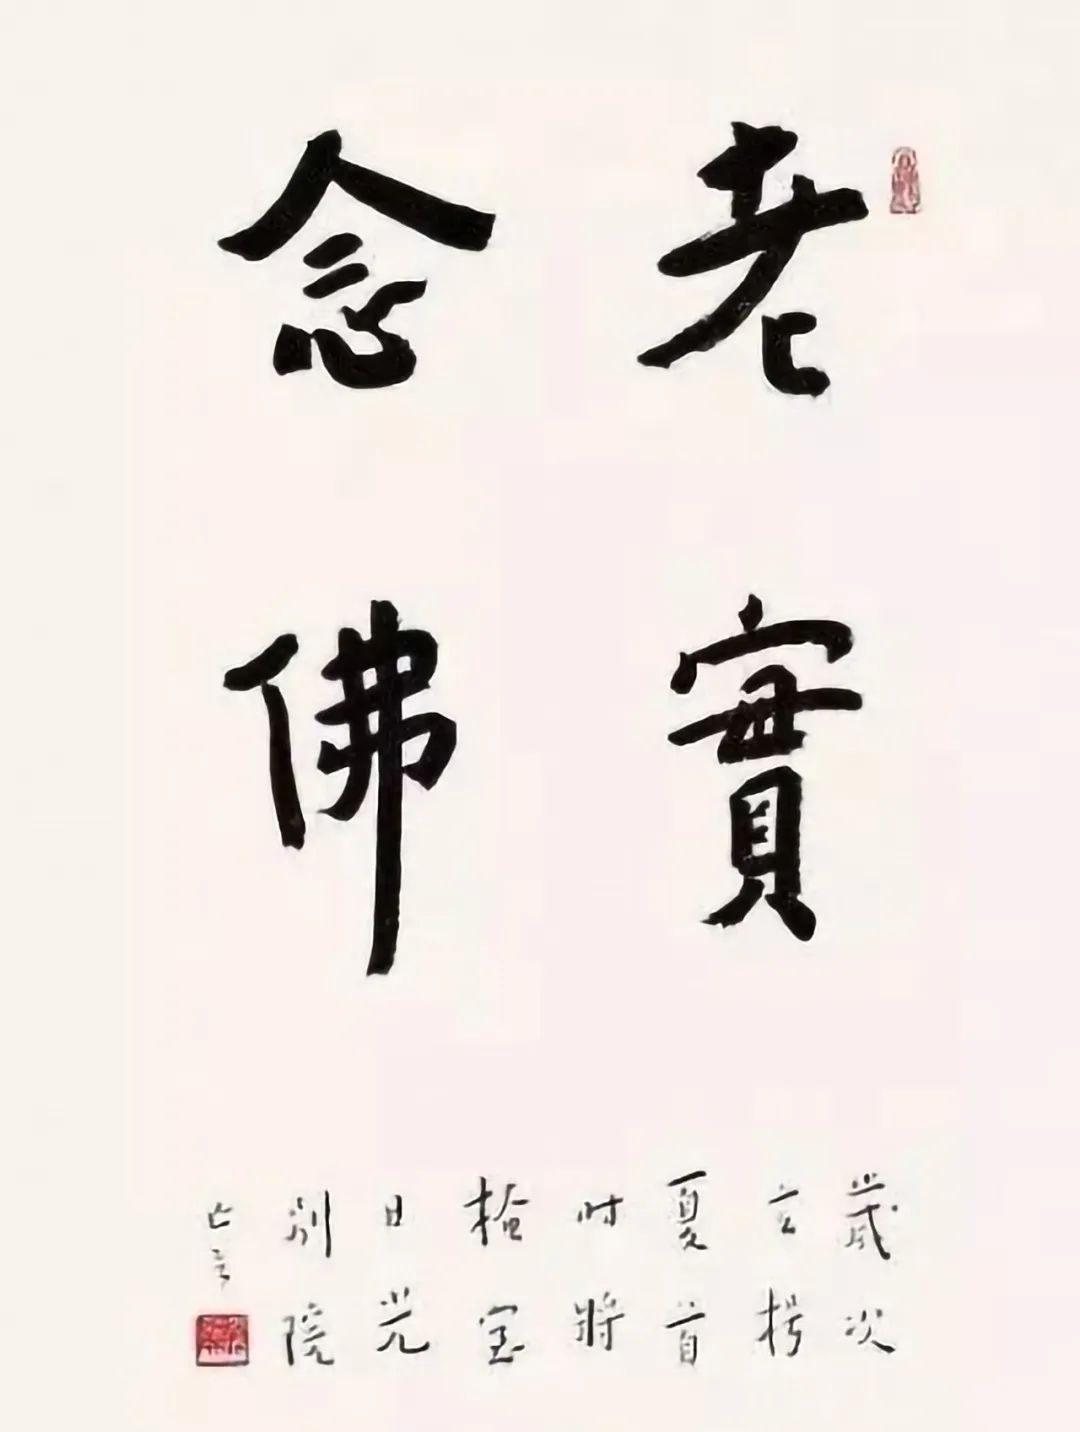 老實
念佛
歲次
玄枵
夏首
時將
檢室
日光
別院
亡言